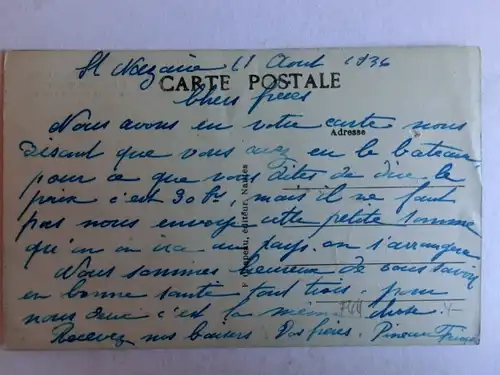 St Nazaire 11 Aout 1936
CARTE POSTALE
Chers freres
Nous avons eu votre carte nous
Adresse
disant que vous avez eu le bateau
pour ce que vous dites de dire le
prix c'est 30 fr, mais il ne faut
pas nous envoyer cette petite somme
qu'on ira au pays on s'arrangera
Nous sommes heureux de vous savoir
en bonne santé tout trois, pour
nous deux c'est la meme chose.
744
Recevez nos baisers Vos frères.
éditeur, Nantes